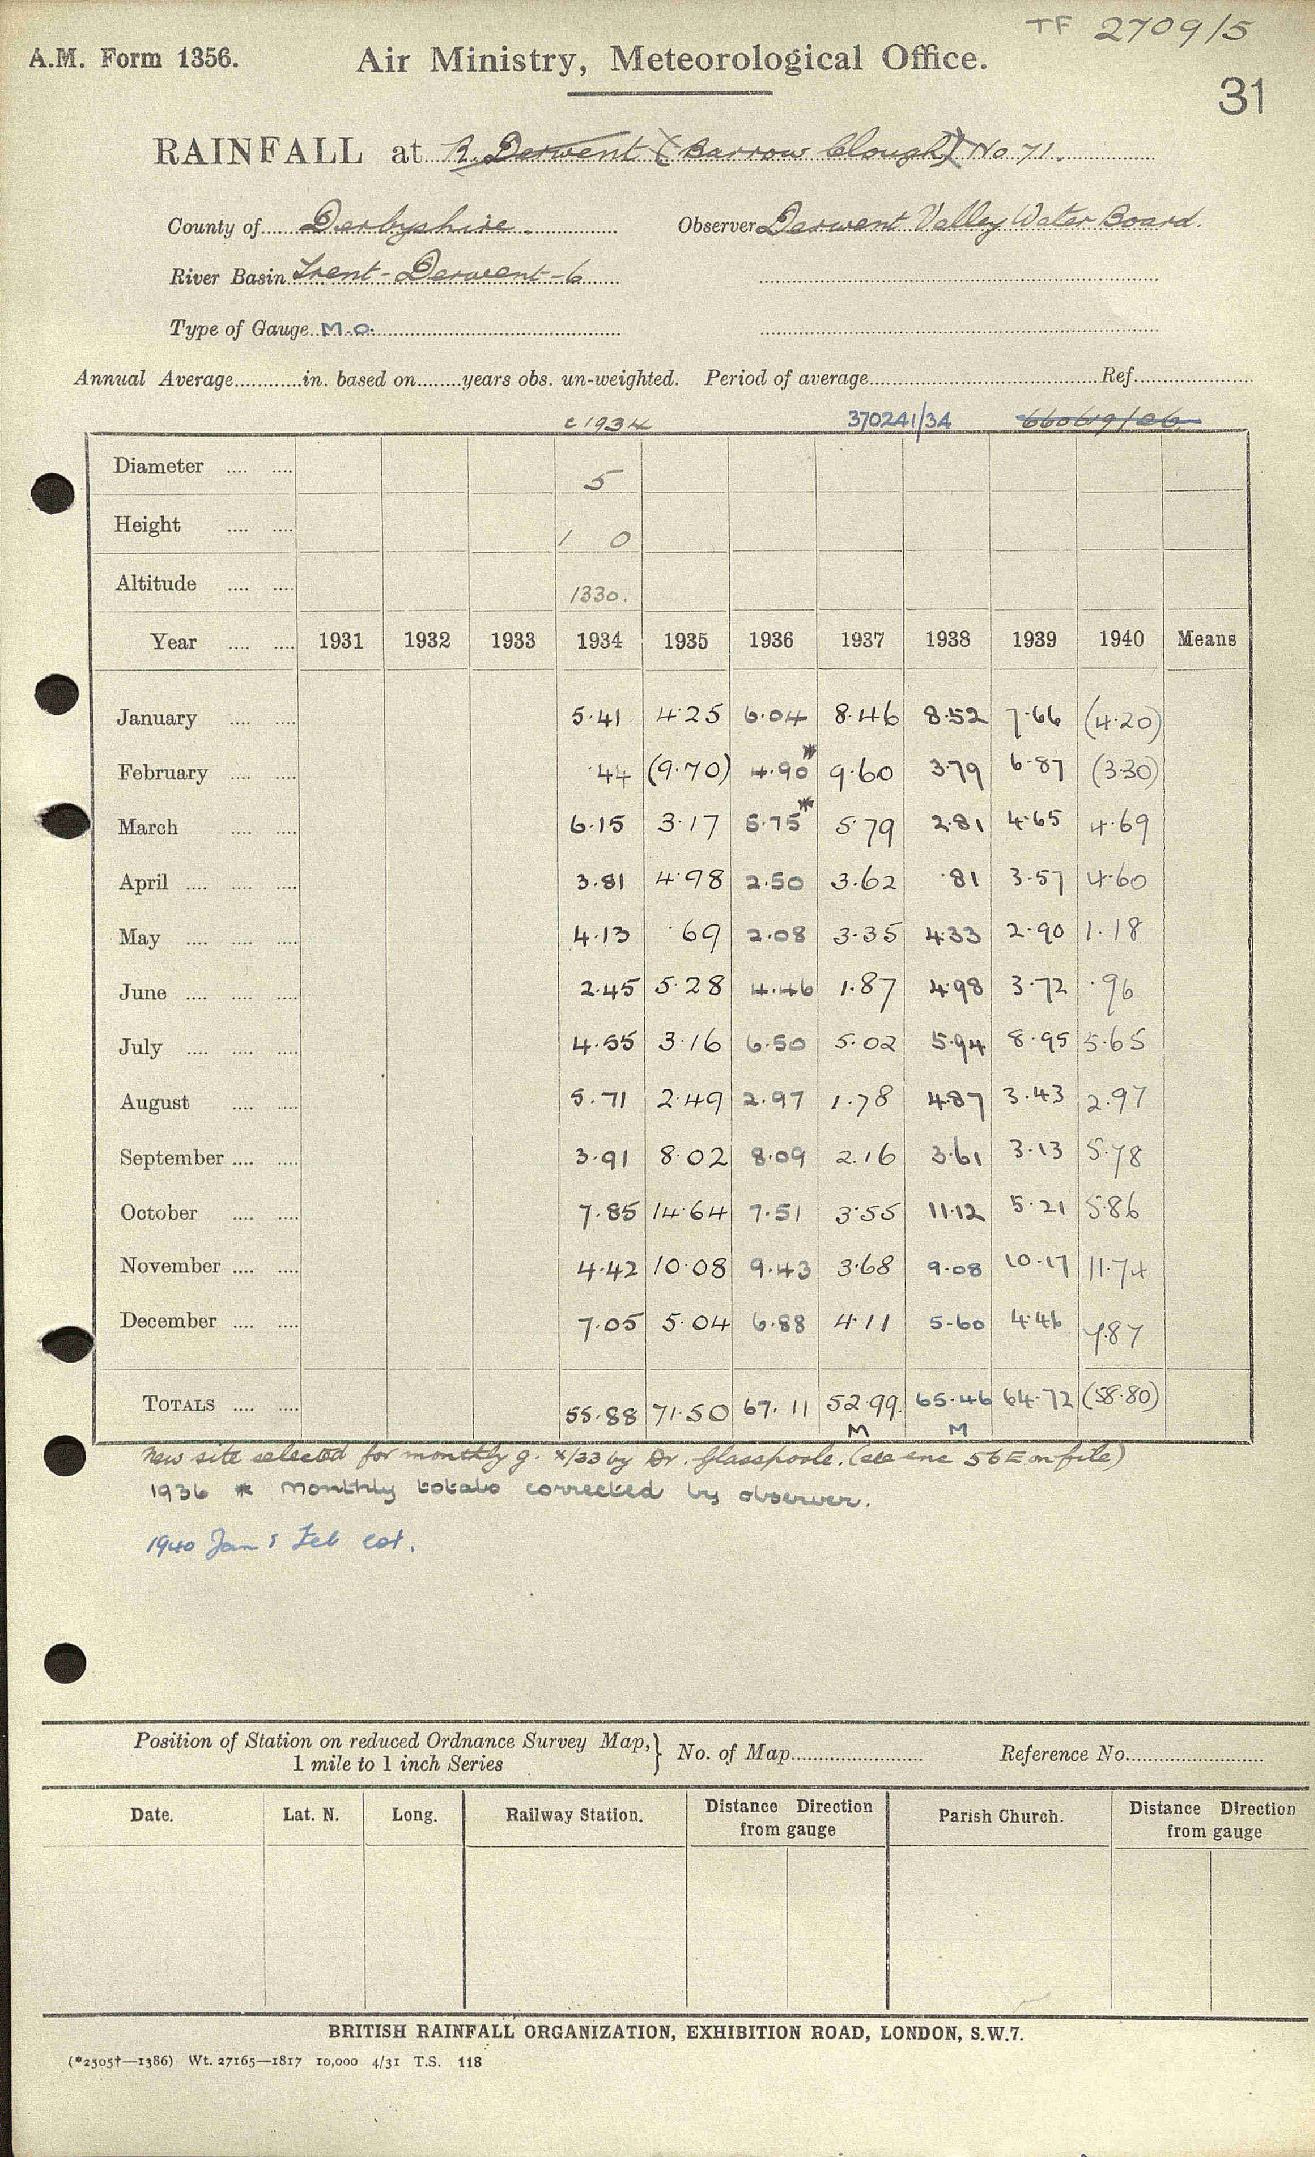 TF 2709/5
A.M. Form 1356. Air Ministry, Meteorological Office.
31
RAINFALL at R. Derwent (Barrow Clough) No 71.
County of Derbyshire. Observer Derwent Valley Water Board.
River Basin Trent - Derwent - 6
Type of Gauge M.O.
Annual Average............in. based on........years obs. un-weighted. Period of average............ Ref............
c 1934 370241/34 66069/06
Diameter .... .... 5
Height .... .... 1 0
Altitude .... .... 1330.
Year .... .... 1931 1932 1933 1934 1935 1936 1937 1938 1939 1940 Means
January .... .... 5.41 4.25 6.04 8.46 8.52 7.66 (4.20)
February .... .... .44 (9.70) 4.90* 9.60 3.79 6.87 (3.30)
March .... .... 6.15 3.17 5.75* 5.79 2.81 4.65 4.69
April .... .... .... 3.81 4.98 2.50 3.62 .81 3.57 4.60
May .... .... .... 4.13 .69 2.08 3.35 4.33 2.90 1.18
June .... .... .... 2.45 5.28 4.46 1.87 4.98 3.72 .96
July .... .... .... 4.55 3.16 6.50 5.02 5.94 8.95 5.65
August .... .... 5.71 2.49 2.97 1.78 4.87 3.43 2.97
September .... .... 3.91 8.02 8.09 2.16 3.61 3.13 5.78
October .... .... 7.85 14.64 7.51 3.55 11.12 5.21 5.86
November .... .... 4.42 10.08 9.43 3.68 9.08 10.17 11.74
December .... .... 7.05 5.04 6.88 4.11 5.60 4.46 7.87
TOTALS .... .... 55.88 71.50 67.11 52.99. 65.46 64.72 (58.80)
M M
New site selected for monthly g. x/33 by Dr. Glasspoole. (see enc 56E on file)
1936 * Monthly totals corrected by observer.
1940 Jan & Feb est.
Position of Station on reduced Ordnance Survey Map, } No. of Map............ Reference No............
1 mile to 1 inch Series
Date. Lat. N. Long. Railway Station. Distance Direction from gauge Parish Church. Distance Direction from gauge
BRITISH RAINFALL ORGANIZATION, EXHIBITION ROAD, LONDON, S.W.7.
(*2505†—1386) Wt. 27165—1817 10,000 4/31 T.S. 118